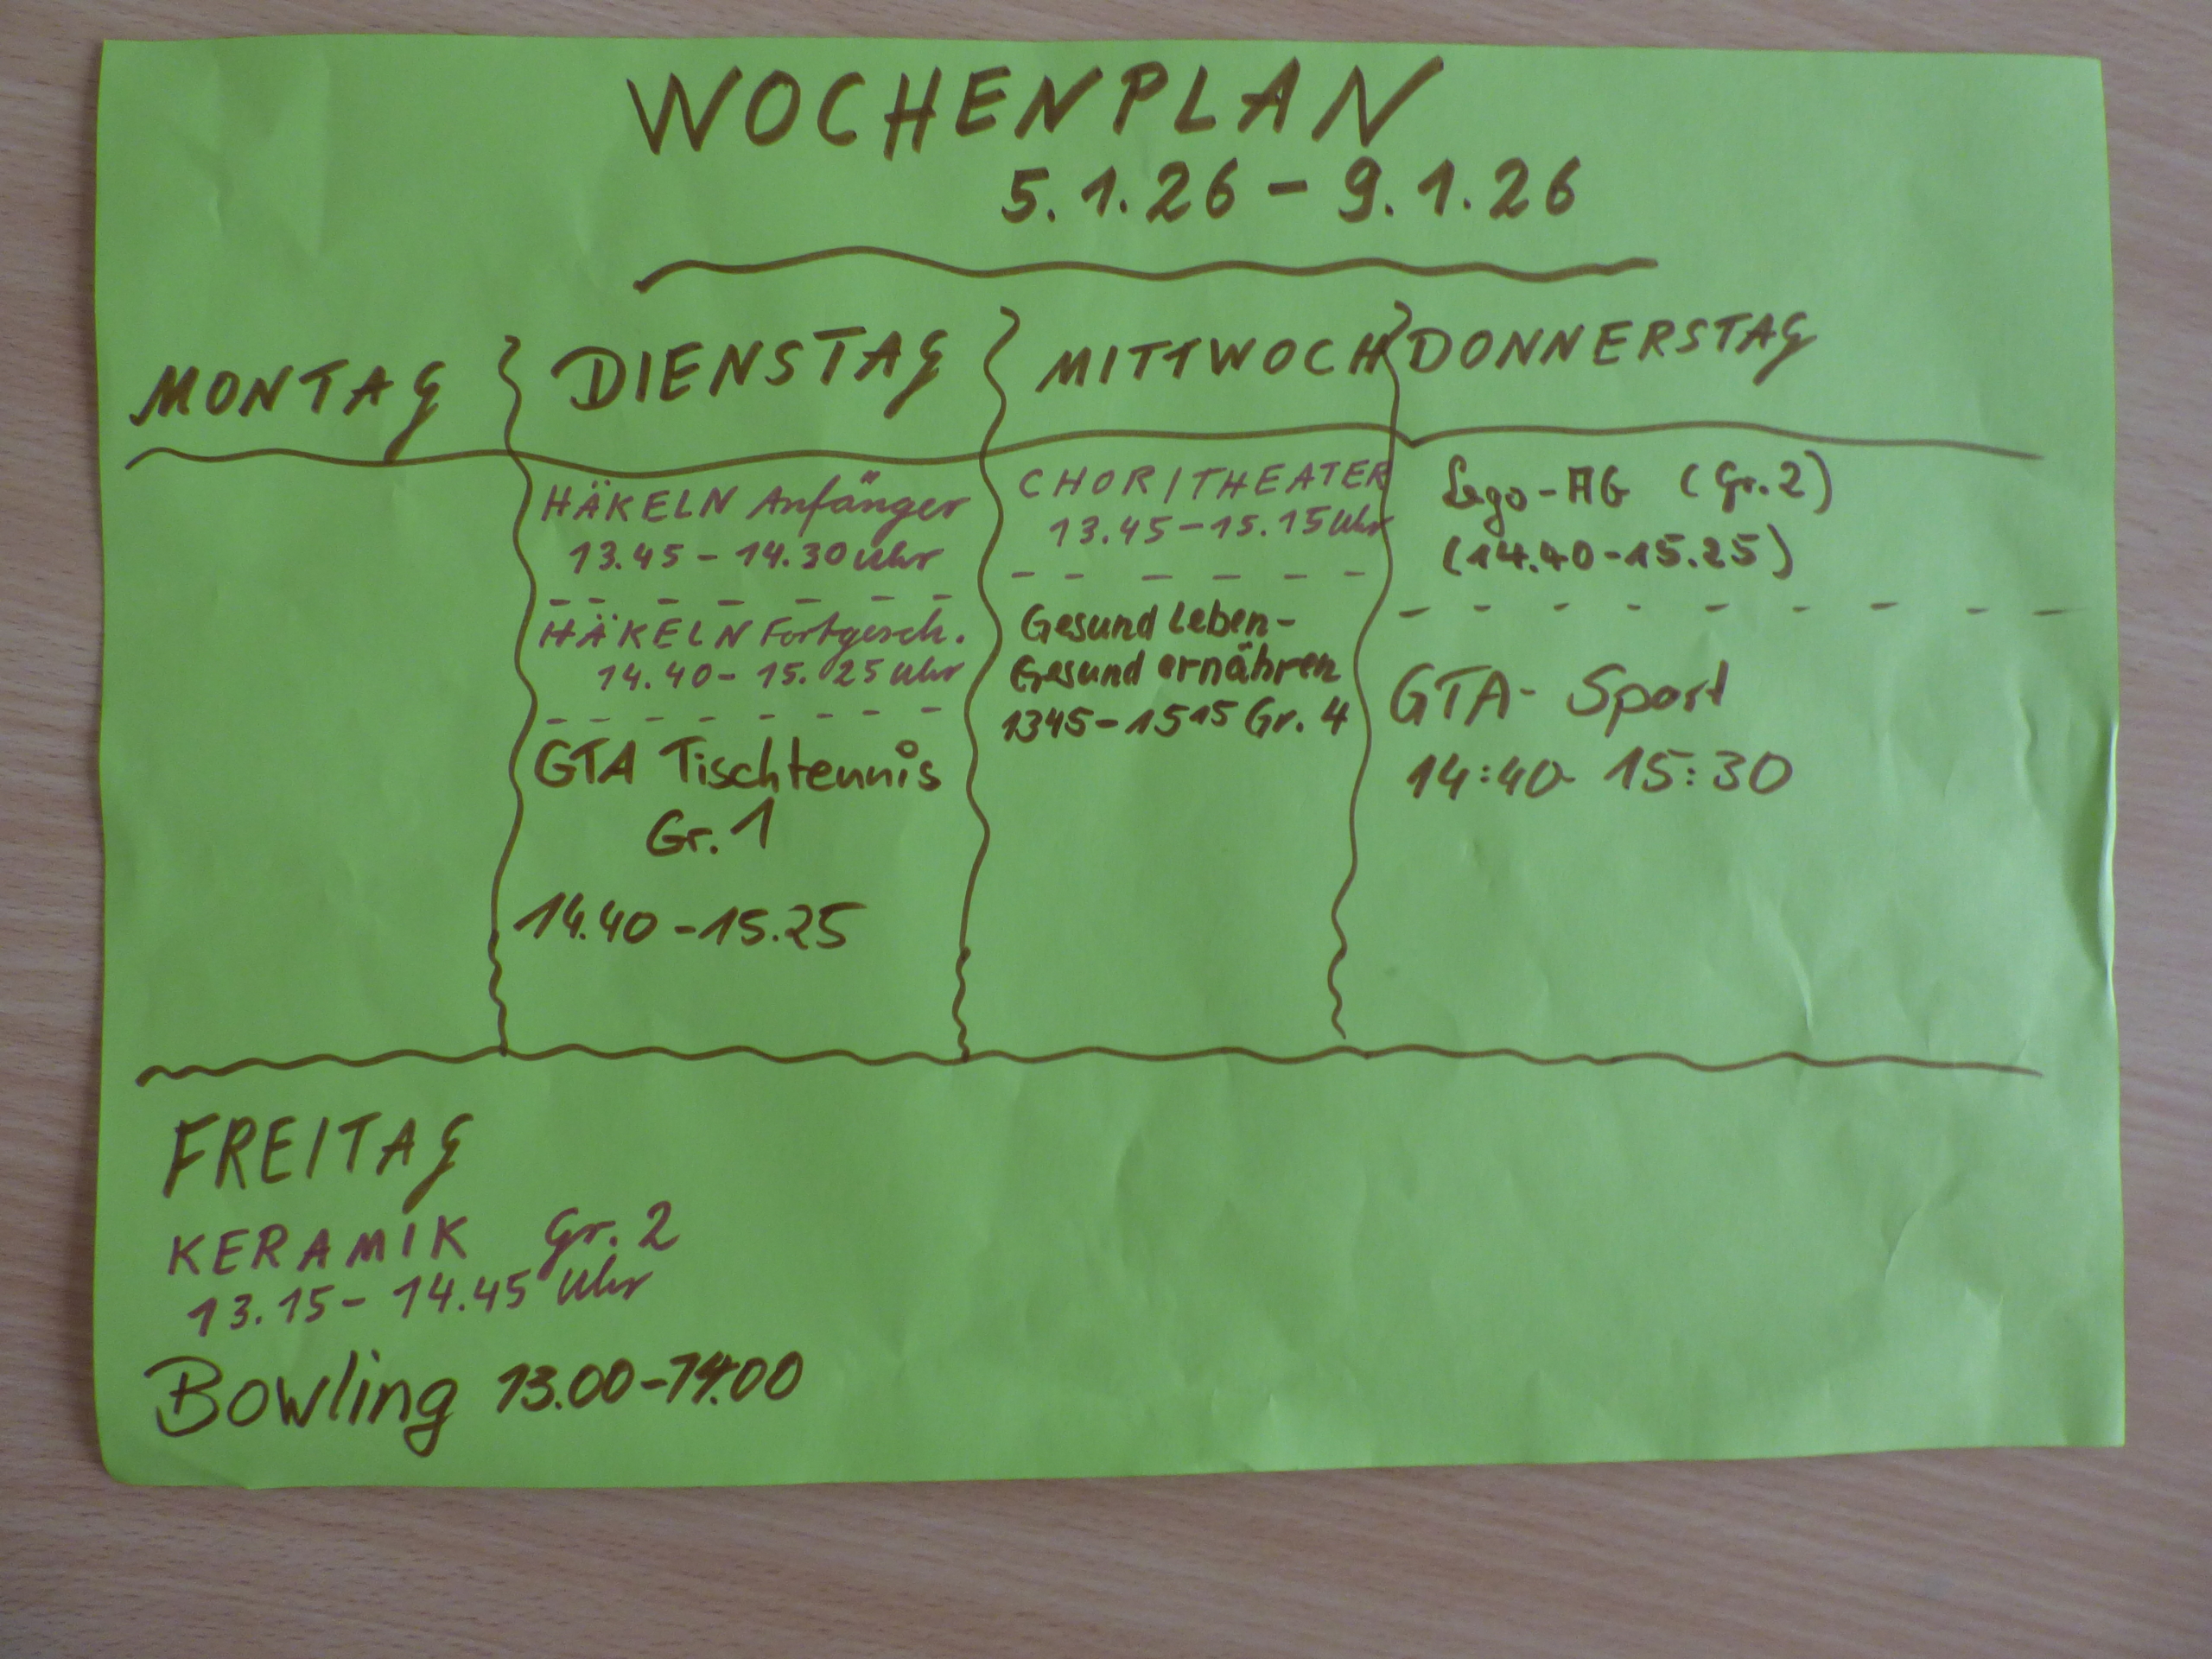 WOCHENPLAN
5.1.26 - 9.1.26
MONTAG
DIENSTAG
HÄKELN Anfänger
13.45 - 14.30 Uhr
HÄKELN Fortgesch.
14.40 - 15.25 Uhr
GTA Tischtennis
Gr. 1
14.40 - 15.25
MITTWOCH
CHOR/THEATER
13.45 - 15.15 Uhr
Gesund leben-
Gesund ernähren
1345 - 1515 Gr. 4
DONNERSTAG
Lego-AG (Gr. 2)
(14.40 - 15.25)
GTA- Sport
14:40- 15:30
FREITAG
KERAMIK Gr. 2
13.15 - 14.45 Uhr
Bowling 13.00 - 14.00